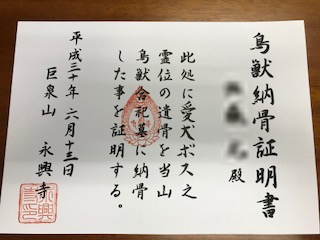 鳥獣納骨証明書
殿
此処に愛犬ボス之
霊位の遺骨を当山
鳥獣合祀墓に納骨
した事を証明する。
平成三十年 六月十三日
巨泉山 永興寺